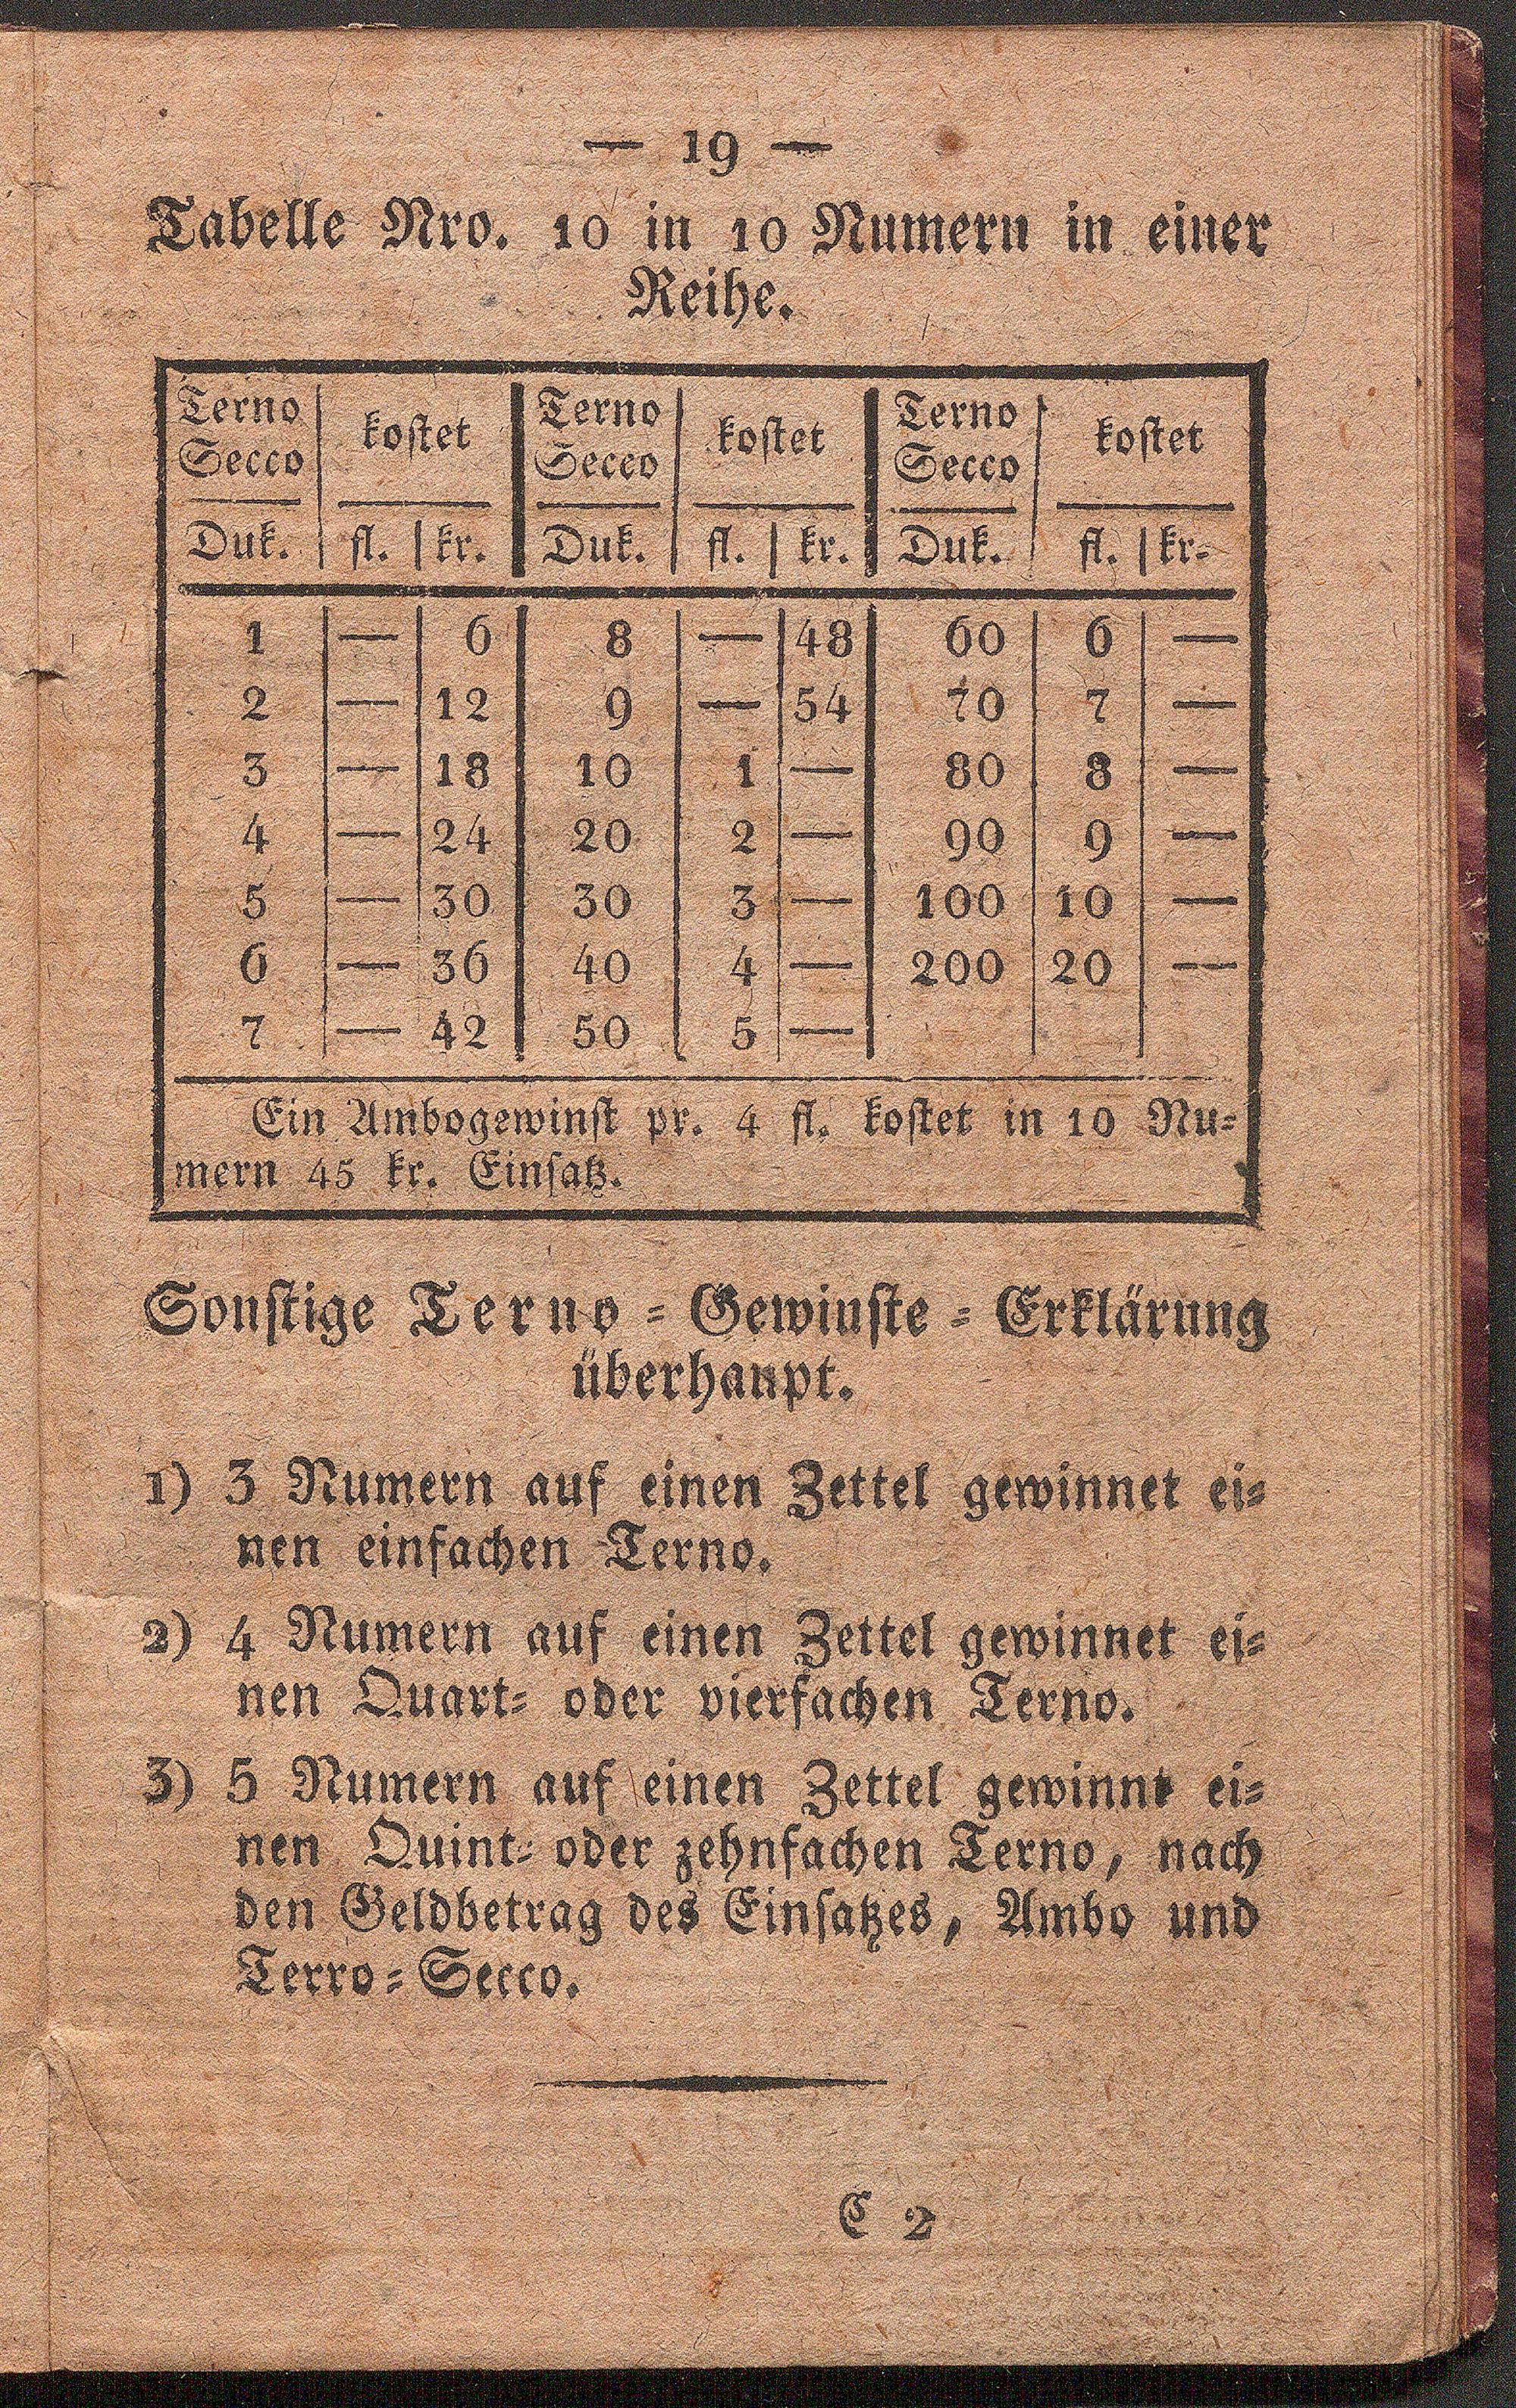 — 19 —
Tabelle Nro. 10 in 10 Numern in einer
Reihe.
Terno Secco | kostet | Terno Seceo | kostet | Terno Secco | kostet
Duk. | fl. | kr. | Duk. | fl. | kr. | Duk. | fl. | kr-
1 | — | 6 | 8 | — | 48 | 60 | 6 | —
2 | — | 12 | 9 | — | 54 | 70 | 7 | —
3 | — | 18 | 10 | 1 | — | 80 | 8 | —
4 | — | 24 | 20 | 2 | — | 90 | 9 | —
5 | — | 30 | 30 | 3 | — | 100 | 10 | —
6 | — | 36 | 40 | 4 | — | 200 | 20 | —
7 | — | 42 | 50 | 5 | —
Ein Ambogewinst pr. 4 fl. kostet in 10 Nu-
mern 45 kr. Einsatz.
Sonstige Terno-Gewinste-Erklärung
überhaupt.
1) 3 Numern auf einen Zettel gewinnet ei-
nen einfachen Terno.
2) 4 Numern auf einen Zettel gewinnet ei-
nen Quart- oder vierfachen Terno.
3) 5 Numern auf einen Zettel gewinnt ei-
nen Quint- oder zehnfachen Terno, nach
den Geldbetrag des Einsatzes, Ambo und
Terro-Secco.
C 2